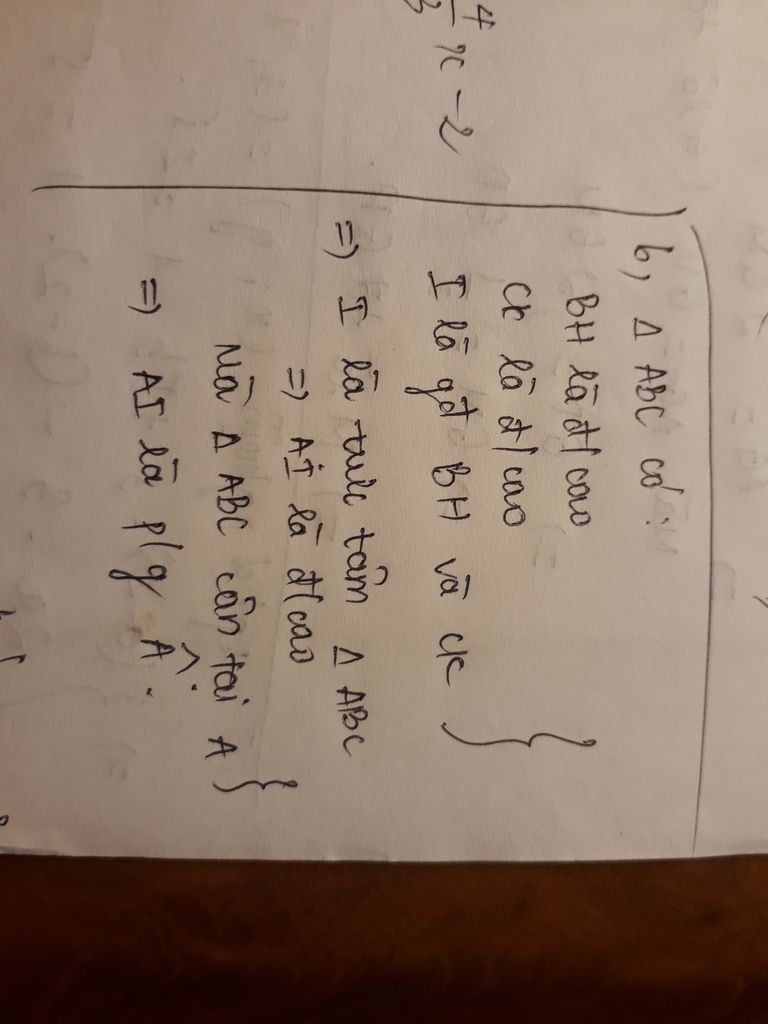 4/3 x - 2
b, Δ ABC có :
BH là đ/cao
CK là đ/cao
I là gđ BH và CK }
=> I là trực tâm Δ ABC
=> AI là đ/cao
Mà Δ ABC cân tại A }
=> AI là p/g Â.